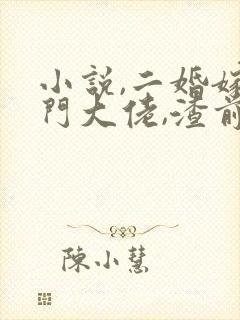 小說,二婚嫁
門大佬,渣前
陳小慧